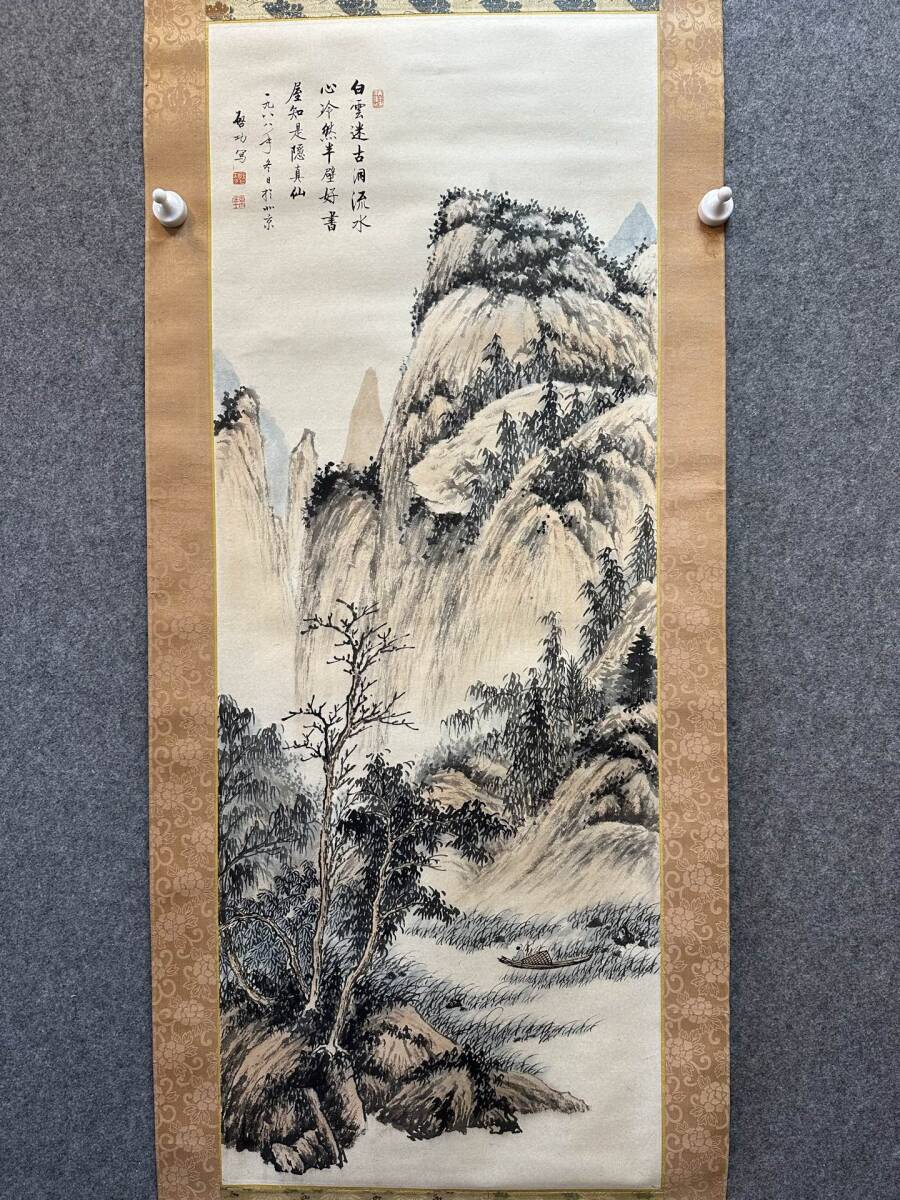 白雲迷古洞流水
心冷然半壁好書
屋知是隱真仙
一九八八年冬日於北京
啓功寫